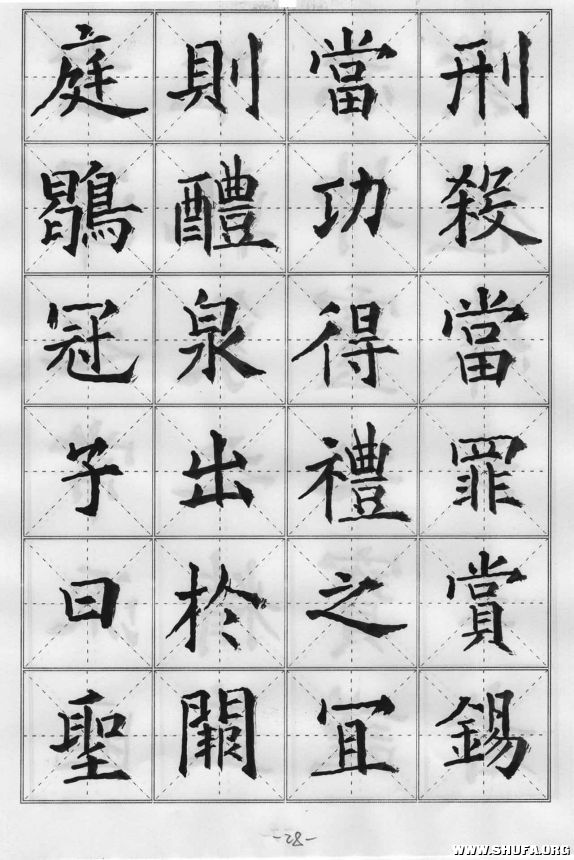 刑殺當罪賞錫
當功得禮之宜
則醴泉出於闕
庭鶡冠子曰聖
-28-
WWW.SHUFA.ORG